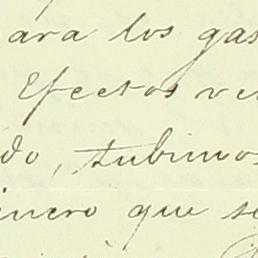 ara los gas
Efectos ve
do, tubimos
inero que se